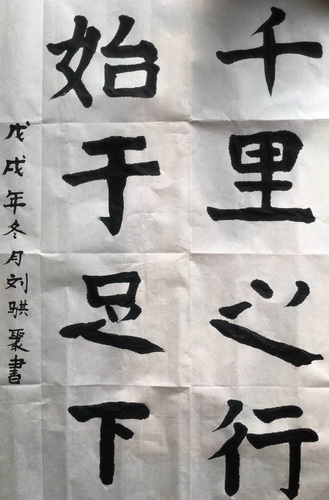 千里之行
始于足下
戊戌年冬月刘骐聚書